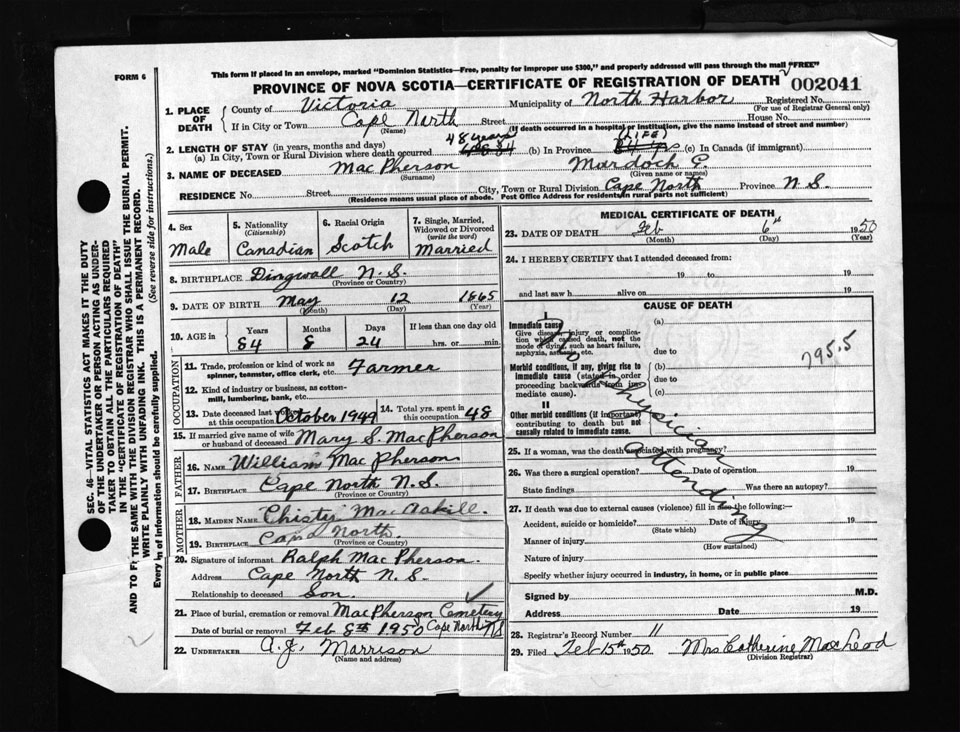 FORM 6
This form if placed in an envelope, marked "Dominion Statistics—Free, penalty for improper use $300," and properly addressed will pass through the mail "FREE"
PROVINCE OF NOVA SCOTIA—CERTIFICATE OF REGISTRATION OF DEATH 002041
1. PLACE OF DEATH
County of Victoria Municipality of North Harbor Registered No.
(For use of Registrar General only)
If in City or Town Cape North Street House No.
(Name) (If death occurred in a hospital or institution, give the name instead of street and number)
2. LENGTH OF STAY (in years, months and days) 48 years (LIFE)
(a) In City, Town or Rural Division where death occurred (b) In Province (c) In Canada (if immigrant)
3. NAME OF DECEASED MacPherson Murdoch G.
(Surname) (Given name or names)
RESIDENCE No. Street City, Town or Rural Division Cape North Province N.S.
(Residence means usual place of abode. Post Office Address for residents in rural parts not sufficient)
4. Sex Male
5. Nationality (Citizenship) Canadian
6. Racial Origin Scotch
7. Single, Married, Widowed or Divorced (write the word) Married
8. BIRTHPLACE Dingwall N.S.
(Province or Country)
9. DATE OF BIRTH May 12 1865
(Month) (Day) (Year)
10. AGE in Years Months Days If less than one day old
84 8 24 hrs. or min.
OCCUPATION
11. Trade, profession or kind of work as spinner, teamster, office clerk, etc. Farmer
12. Kind of industry or business, as cotton-mill, lumbering, bank, etc.
13. Date deceased last worked at this occupation October 1949
14. Total yrs. spent in this occupation 48
15. If married give name of wife or husband of deceased Mary S. MacPherson
FATHER
16. NAME William MacPherson
17. BIRTHPLACE Cape North N.S.
(Province or Country)
MOTHER
18. MAIDEN NAME Christy MacAskill.
19. BIRTHPLACE Cape North.
(Province or Country)
20. Signature of informant Ralph MacPherson.
Address Cape North N.S.
Relationship to deceased Son.
21. Place of burial, cremation or removal MacPherson Cemetery
Date of burial or removal Feb 8th 1950 Cape North NS
22. UNDERTAKER A.J. Morrison
(Name and address)
MEDICAL CERTIFICATE OF DEATH
23. DATE OF DEATH Feb 6th 1950
(Month) (Day) (Year)
24. I HEREBY CERTIFY that I attended deceased from:
19 to 19
and last saw h alive on 19
CAUSE OF DEATH
I
Immediate cause
Give disease, injury or complication which caused death, not the mode of dying, such as heart failure, asphyxia, asthenia, etc.
(a)
due to
Morbid conditions, if any, giving rise to immediate cause (stated in order proceeding backwards from immediate cause).
(b)
due to
(c)
795.5
II
Other morbid conditions (if important) contributing to death but not causally related to immediate cause.
No Physician Attending
25. If a woman, was the death associated with pregnancy?
26. Was there a surgical operation? Date of operation 19
State findings Was there an autopsy?
27. If death was due to external causes (violence) fill in also the following:—
Accident, suicide or homicide? Date of injury 19
(State which)
Manner of injury
(How sustained)
Nature of injury
Specify whether injury occurred in industry, in home, or in public place
Signed by M.D.
Address Date 19
28. Registrar's Record Number 11
29. Filed Feb 15th 1950. Mrs Catherine MacLeod
(Division Registrar)
SEC. 46—VITAL STATISTICS ACT MAKES IT THE DUTY
OF THE UNDERTAKER OR PERSON ACTING AS UNDER-
TAKER TO OBTAIN ALL THE PARTICULARS REQUIRED
IN THE "CERTIFICATE OF REGISTRATION OF DEATH"
AND TO FILE THE SAME WITH THE DIVISION REGISTRAR WHO SHALL ISSUE THE BURIAL PERMIT.
WRITE PLAINLY WITH UNFADING INK. THIS IS A PERMANENT RECORD.
Every item of information should be carefully supplied. (See reverse side for instructions.)